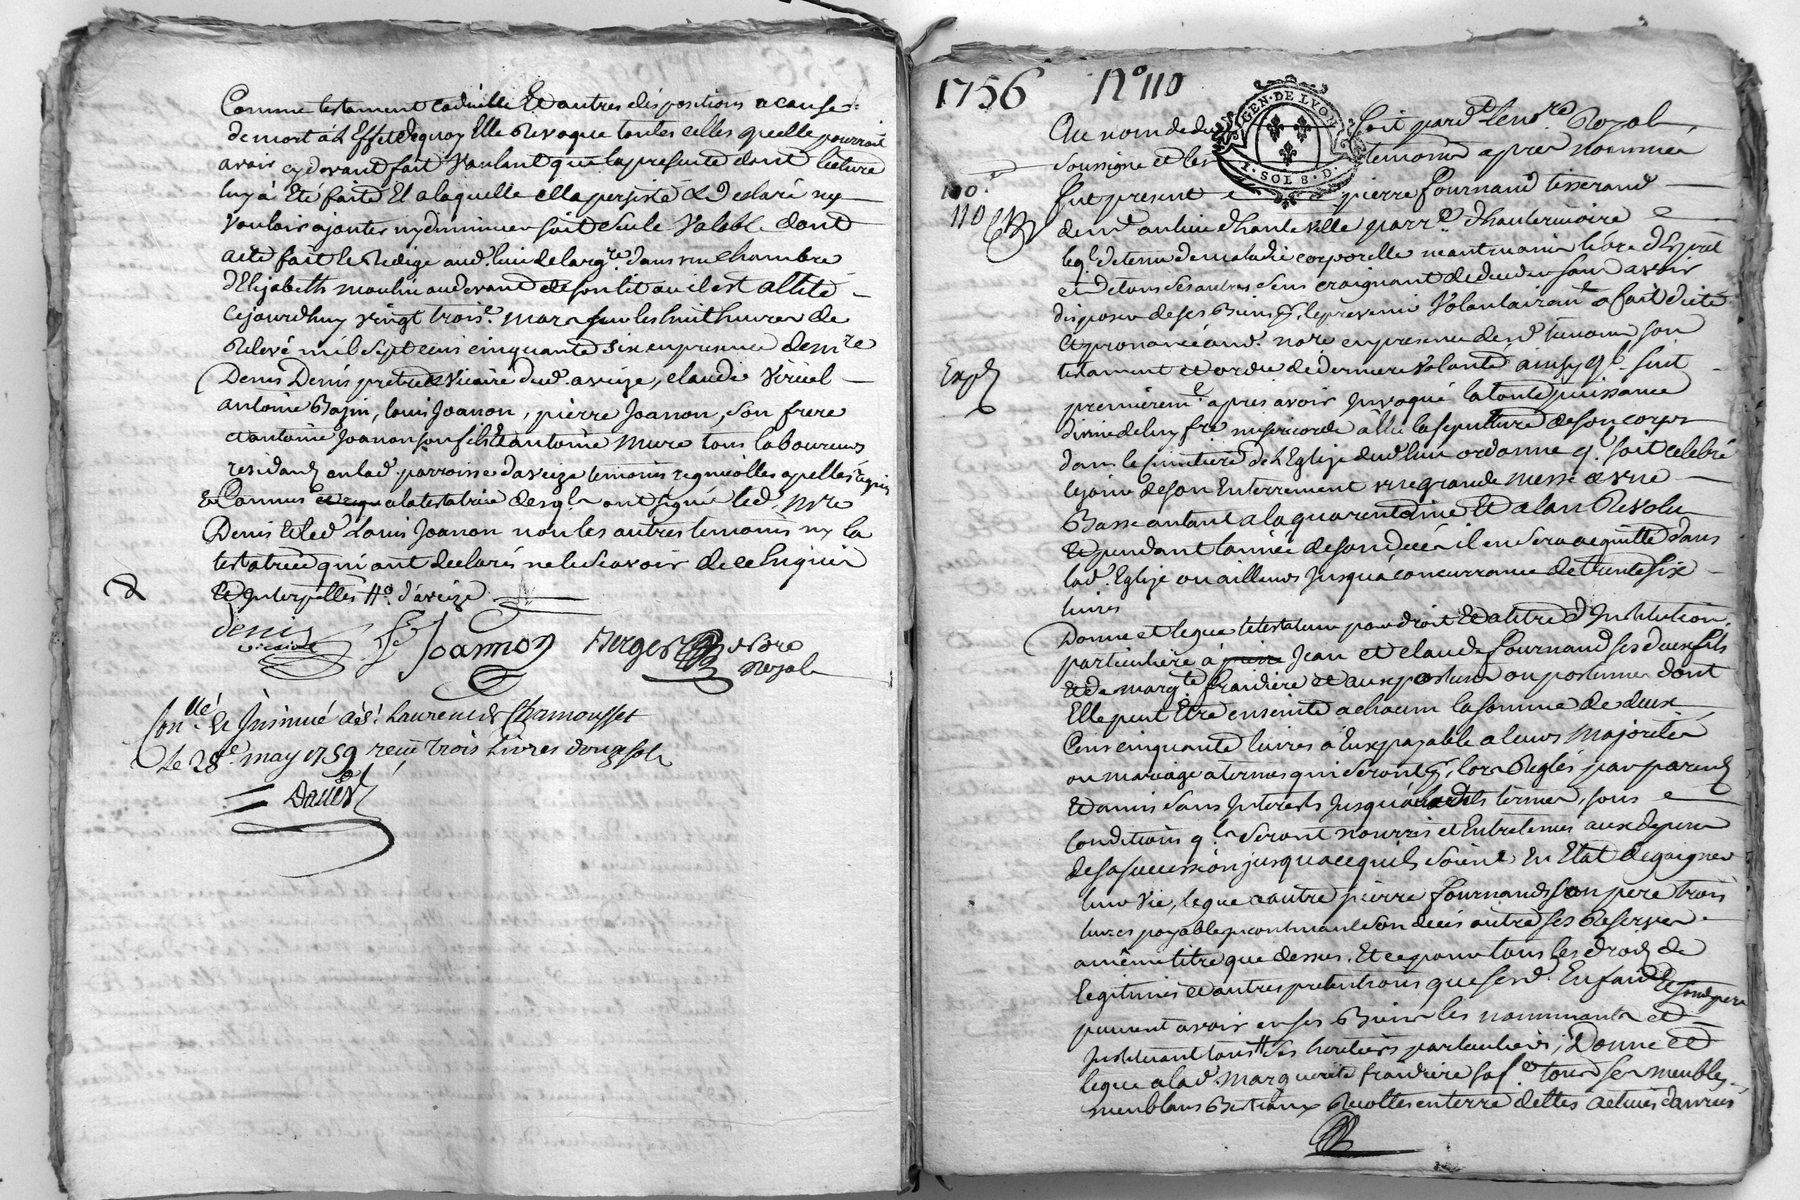 Comme testament codicille Et autres dispositions a cause
de mort à L Effet dequoy Elle Revoque toutes celles quelle pourroit
avoir cy devant fait Voulant que la presente dont lecture
luy à Eté faite Et a laquelle ella persisté & declaré ny
Vouloir ajouter ny diminuer soit seule Valable dont
acte fait le Redigé aud. lieu de larg.re dans une chambre
d'Elizabeth moulin au devant de son lit ou il est allité
cejourdhuy vingt trois.e mars sur les huit heures de
Relevé mil sept cens cinquante six en presence de m.re
Denis Denis pretre & vicaire dud. aveize, claude Viricel
antoine Bazin, louis Joanon, pierre Joanon, son frere
et antoine Joanon son fils Et antoine mure tous laboureurs
residants en lad. parroisse d'aveize temoins requis & appellés
& Connus a la testatrice desq.ls ont signé led. m.re
Denis Et led. Louis Joanon non les autres temoins ny la
testatrice qui ont declarés ne le scavoir de ce Enquis
Et interpellés #.o d'aveize
denis
vicaire
Joannon
Berger
no.re
Royal
Con.lé Et Insinué à S.t Laurent de Chamousset
Le 28.e may 1759 reçu trois Livres douze sols
1756 N.o 110
GEN. DE LYON
SOL 8. D.
Au nom de dieu soit pard.t le no.re Royal
soussigné et les temoins apres nommés
110.
110
fut present pierre fournand tisserand
dem.t au lieu d'hauteville parr.e d'hauterivoire
leq.l detenu de maladie corporelle neantmoins libre d'Esprit
et de tous ses autres sens craignant de deceder sans avoir
disposé de ses Biens Et le prevenir Volontairem.t a fait dicté
Et prononcé aud. no.re en presence desd. temoins son
Exp.d
testament et ordre de derniere Volonté ainsy q.l suit
premierem.t apres avoir Invoqué la toute puissance
divine de luy f.re misericorde à elu la sepulture de son corps
dans le cimetiere de L Eglise dud. lieu ordonne q.l soit celebré
le jour de son Enterrement une grande messe & une
Basse autant a la quarantaine Et a lan Revolu
Et pendant lannée de son decés il en sera acquitté dans
lad. Eglise ou ailleurs Jusqu'a concurrance de trente six
livres
Donne et legue le testateur par droit Et a titre d'Institution
particuliere à Jean et claude fournand ses deux fils
Et de marg.te fraudiere et aux postume ou postumes dont
Elle peut Etre enseinte a chacun la somme de deux
Cens cinquante livres à Eux payable a leurs majorités
ou mariage a termes qui seront lors Reglés par parents
Et amis sans Interests Jusqu'a termes, sous
Conditions q.ls seront nourris et Entretenus aux depens
de sa succession jusqu'a ce qu'ils soient En Etat de gaigner
leur vie, legue a autre pierre fournand son pere trois
livres payable incontinant son decés outre ses Reserves
a même titre que dessus. Et ce pour tous les droits de
legitimes et autres pretentions que sesd. Enfants Et sond. pere
peuvent avoir en ses Biens les nommants et
Instituant tous ses heritiers particuliers; Donne et
legue a lad. marguerite fraudiere sa f.e tous ses meubles
meublans Bestiaux Recoltes en terre dettes actives danrées